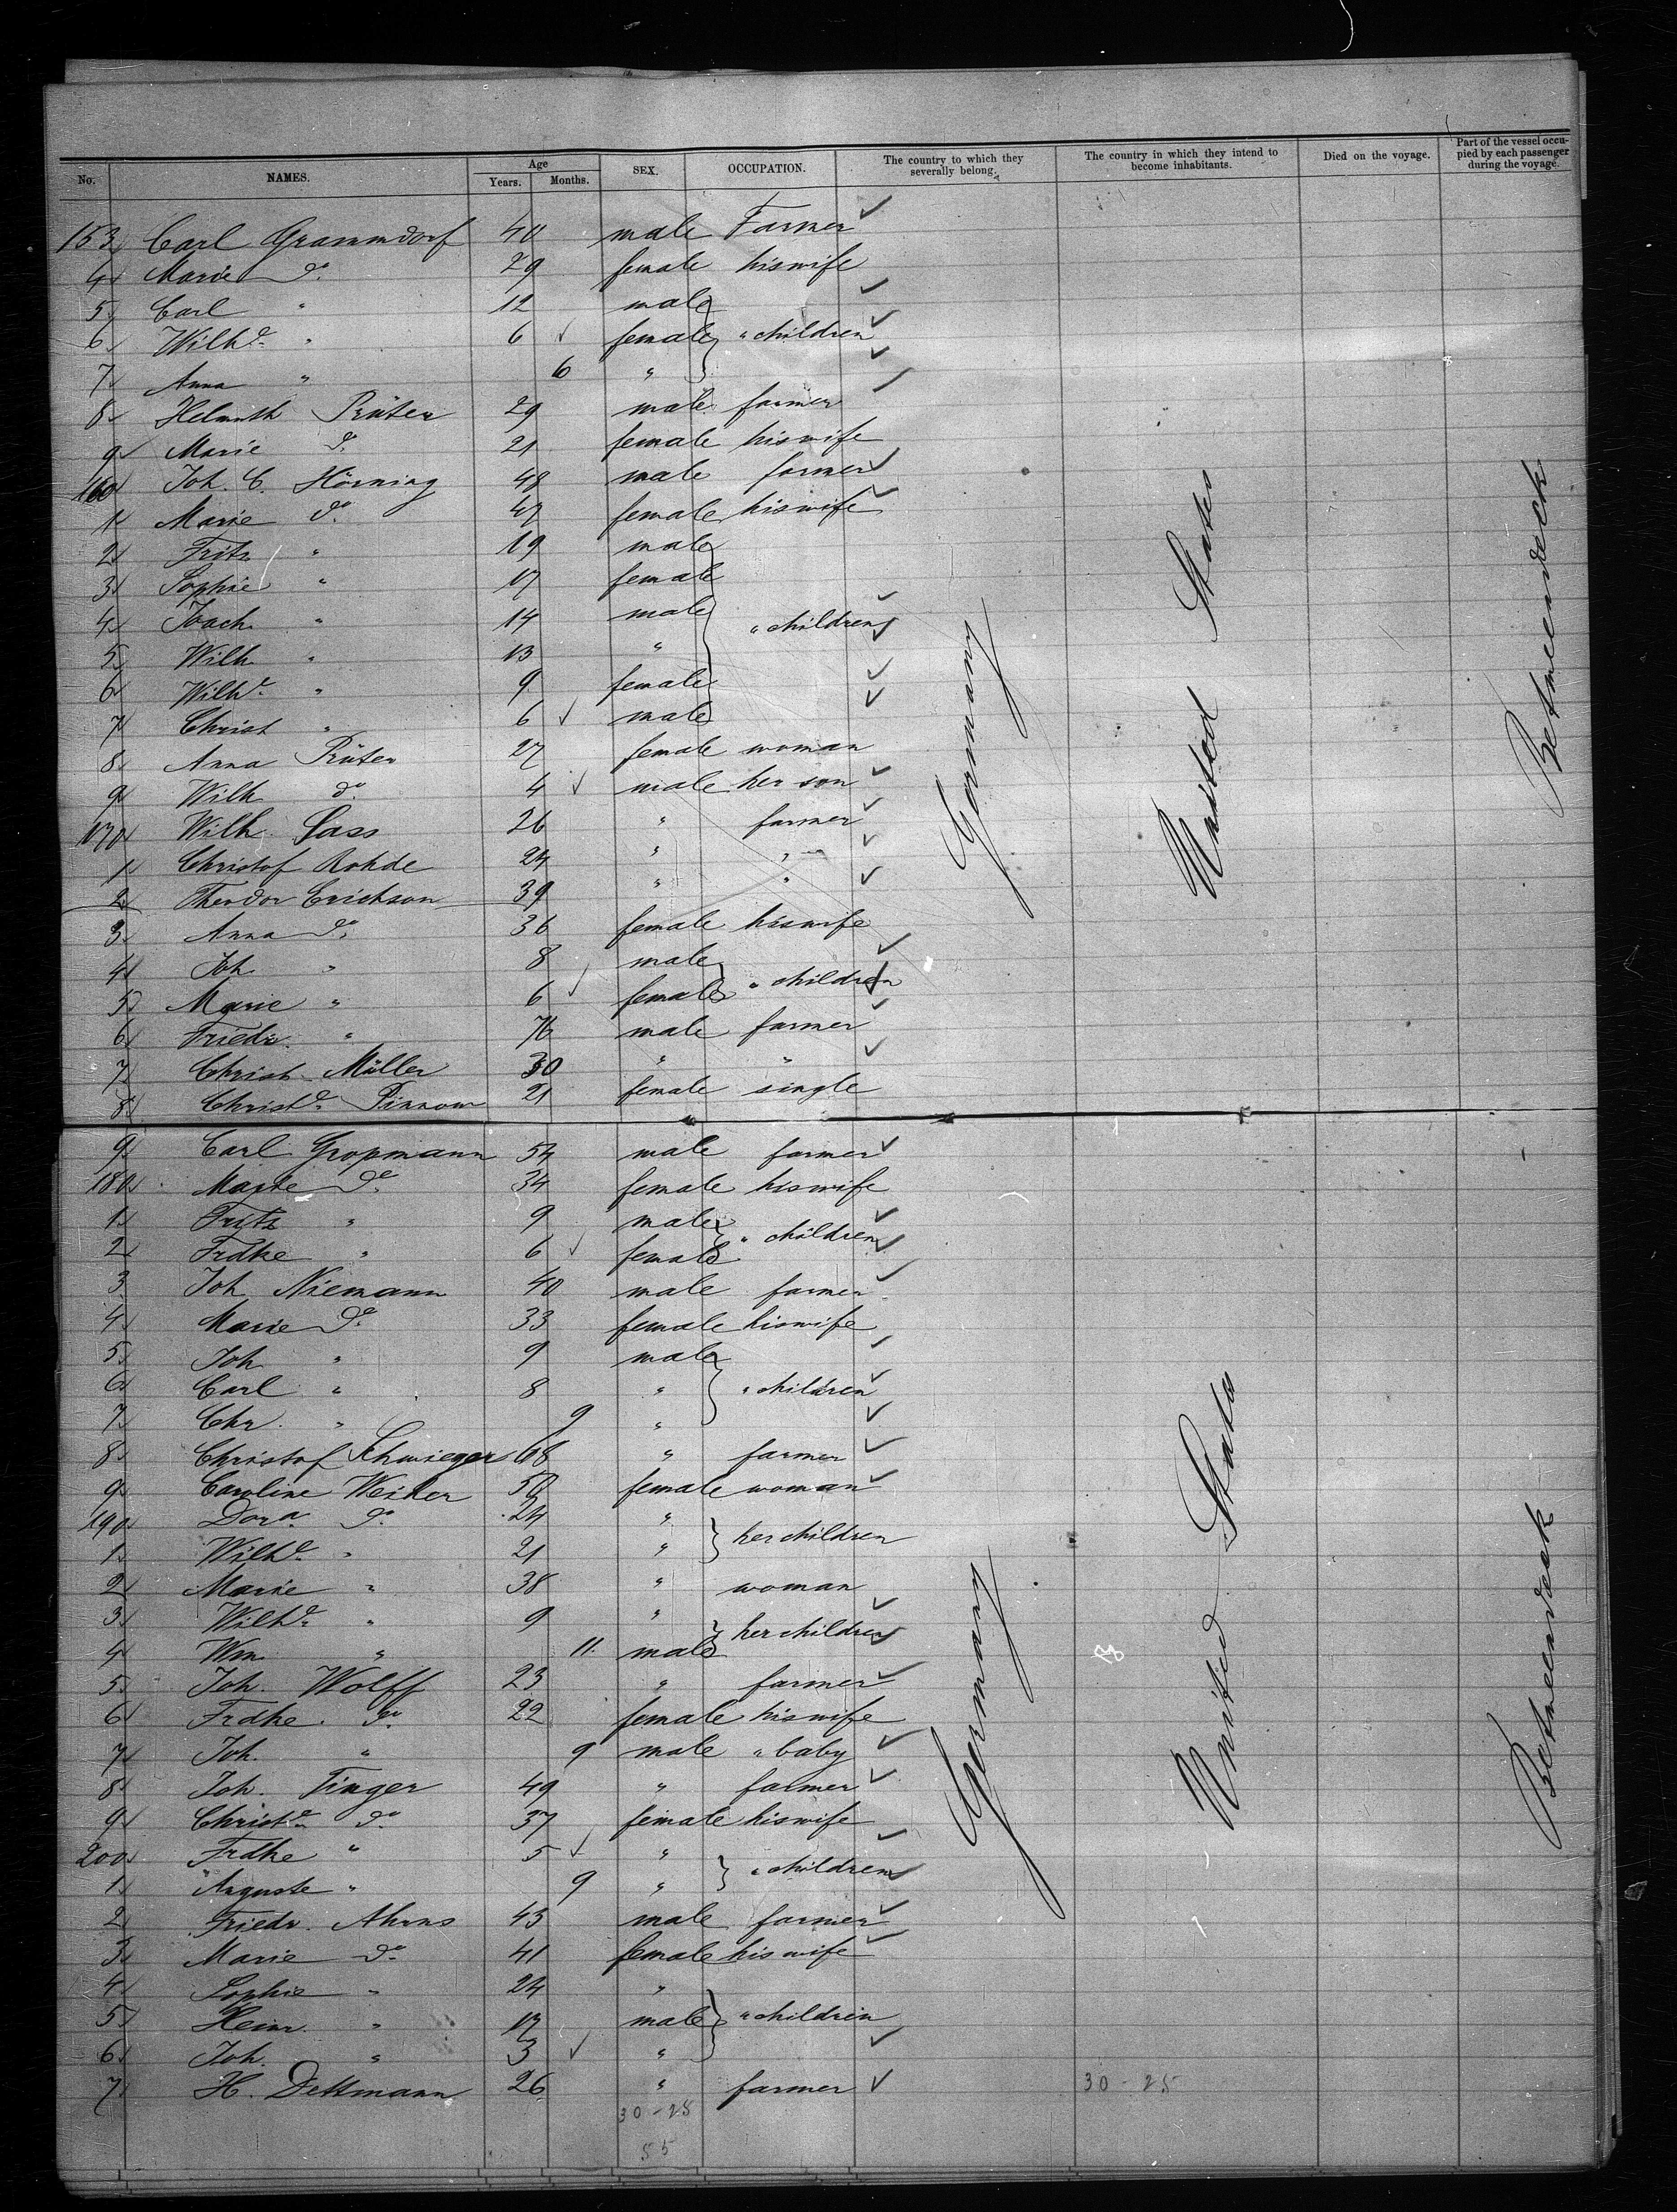 No. NAMES. Age Years. Months. SEX. OCCUPATION. The country to which they severally belong. The country in which they intend to become inhabitants. Died on the voyage. Part of the vessel occupied by each passenger during the voyage.
153 Carl Grammdorf 40 male Farmer
4 Marie do. 29 female his wife
5 Carl " 12 male
6 Wilhe. " 6 female " children
7 Anna " 6 "
8 Helmuth Prüter 29 male farmer
9 Marie do. 21 female his wife
160 Joh. C. Hörning 48 male farmer
1 Marie do. 47 female his wife
2 Fritz " 19 male
3 Sophie " 17 female
4 Joach. " 14 male " children
5 Wilh. " 13 "
6 Wilhe. " 9 female
7 Christ " 6 male
8 Anna Prüter 27 female woman
9 Wilh do. 4 male her son
170 Wilh. Sass 26 " farmer
1 Christof Rohde 24 " "
2 Theodor Erickson 39 " "
3 Anna do. 36 female his wife
4 Joh. " 8 male
5 Marie " 6 female " children
6 Friedr. " 76 male farmer
7 Christ. Müller 30 " "
8 Christe. Pinnow 21 female single
9 Carl Gropmann 54 male farmer
180 Marie do. 34 female his wife
1 Fritz " 9 male " children
2 Frdke " 6 female
3 Joh. Niemann 40 male farmer
4 Marie do. 33 female his wife
5 Joh. " 9 male
6 Carl " 8 " " children
7 Chr. " 9 "
8 Christof Schwieger 68 " farmer
9 Caroline Weiher 58 female woman
190 Dora do. 24 " her children
1 Wilhe. " 21 "
2 Marie " 38 " woman
3 Wilhe. " 9 " her children
4 Wm " 11. male
5 Joh. Wolff 23 " farmer
6 Frdke. do. 22 female his wife
7 Joh. " 9 male " baby
8 Joh. Finger 49 " farmer
9 Christe. do. 37 female his wife
200 Frdke " 5 " " children
1 Auguste " 9 "
2 Friedr. Ahrns 43 male farmer
3 Marie do. 41 female his wife
4 Sophie " 24 "
5 Heinr. " 17 male " children
6 Joh. " 3 "
7 H. Dettmann 26 " farmer
Germany
United States
Betweendeck
Germany
United States
Betweendeck
30 - 25
30 - 25
55